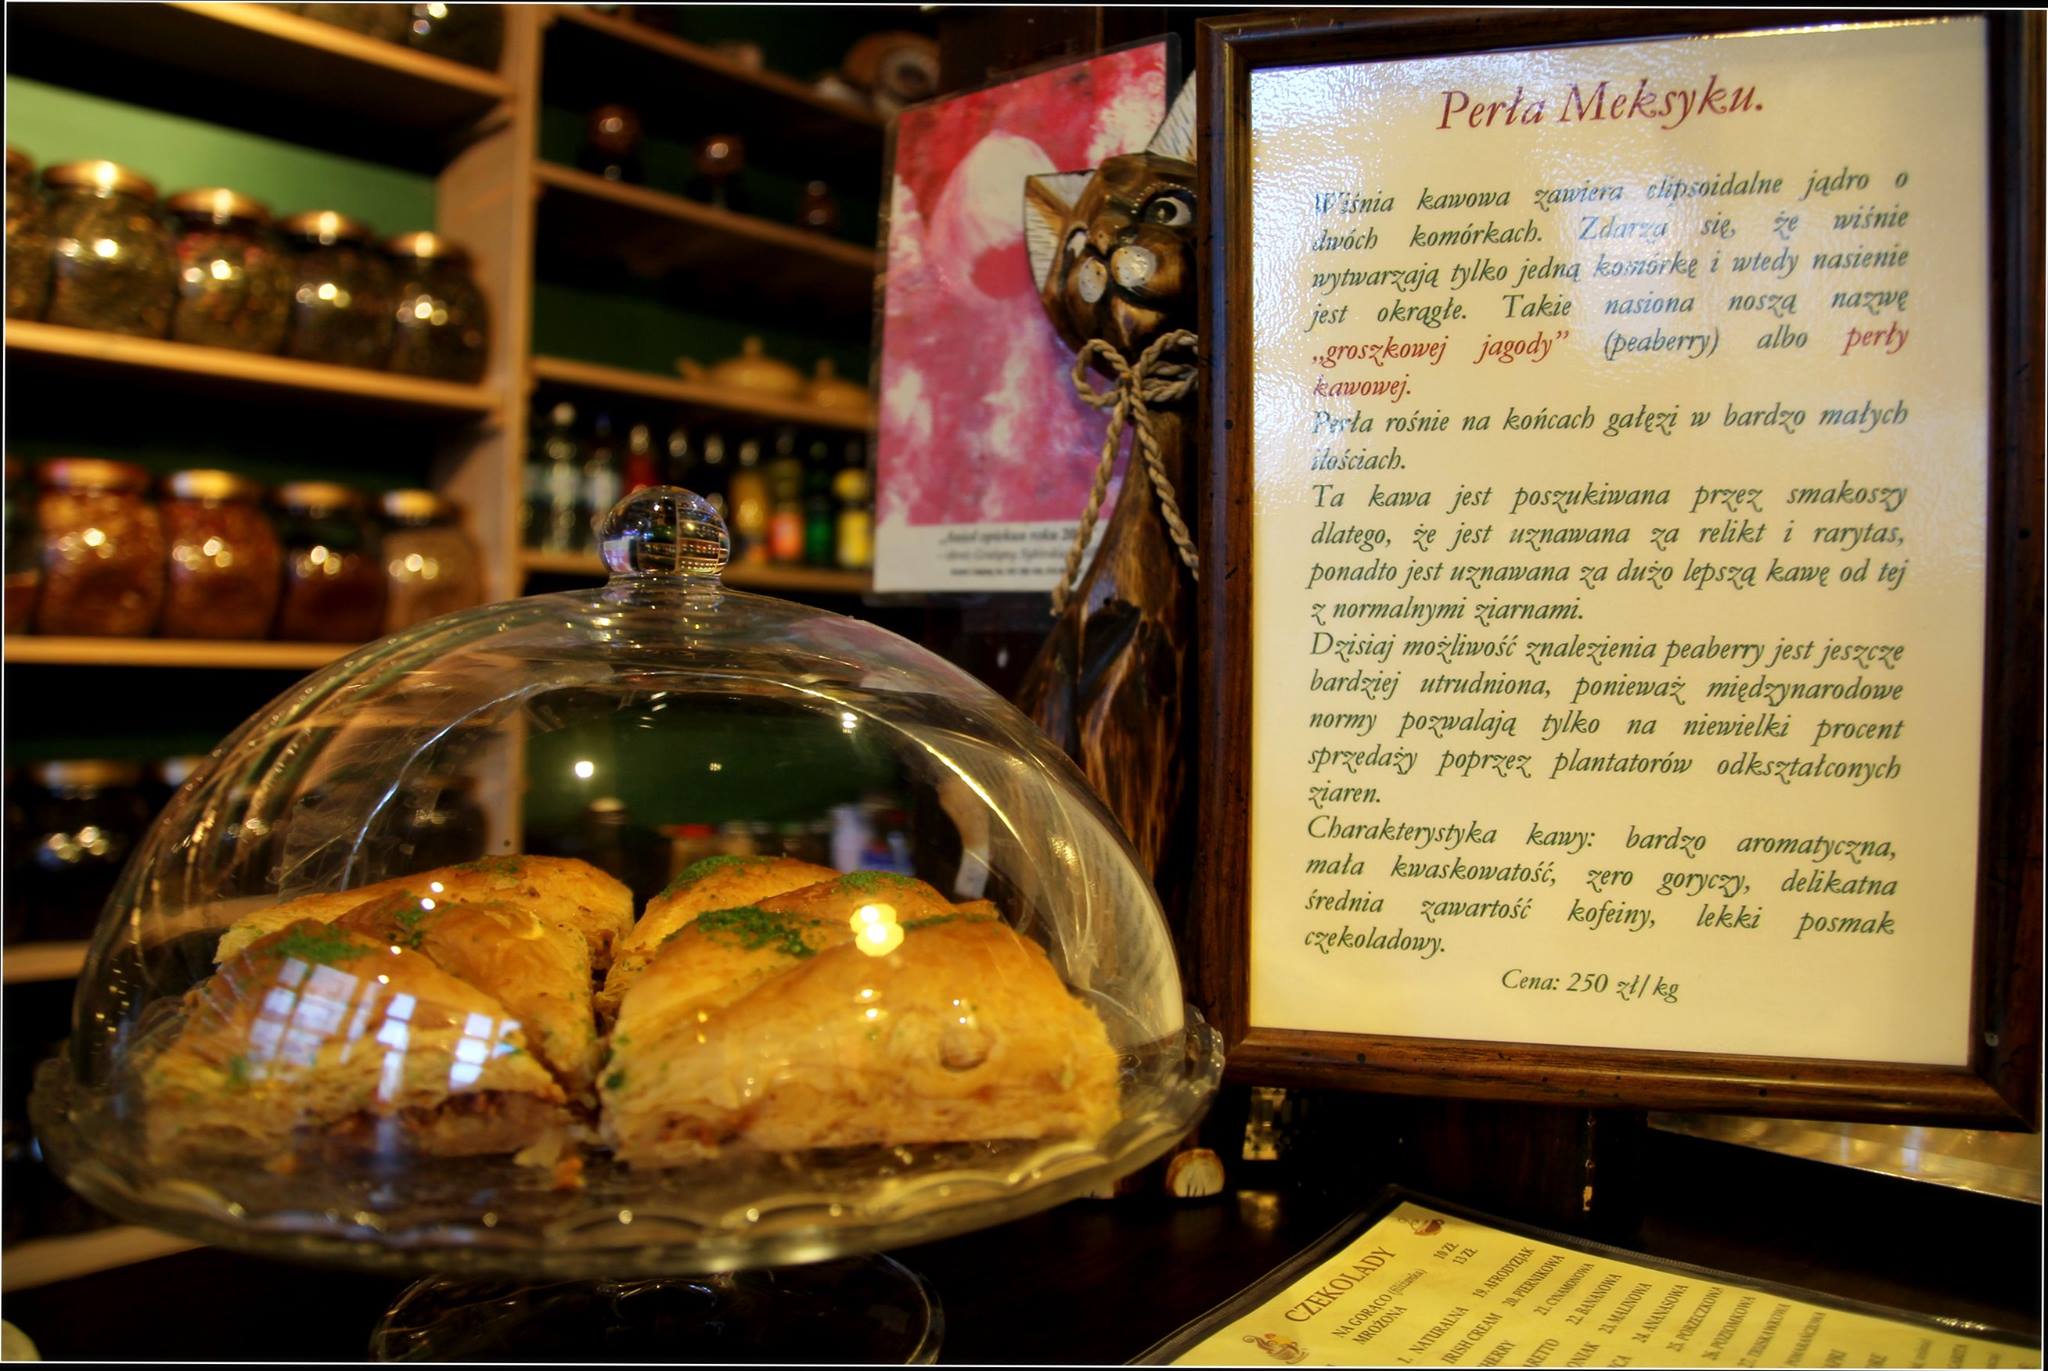 Perła Meksyku.
Wiśnia kawowa zawiera elipsoidalne jądro o
dwóch komórkach. Zdarza się, że wiśnie
wytwarzają tylko jedną komórkę i wtedy nasienie
jest okrągłe. Takie nasiona noszą nazwę
„groszkowej jagody” (peaberry) albo perły
kawowej.
Perła rośnie na końcach gałęzi w bardzo małych
ilościach.
Ta kawa jest poszukiwana przez smakoszy
dlatego, że jest uznawana za relikt i rarytas,
ponadto jest uznawana za dużo lepszą kawę od tej
z normalnymi ziarnami.
Dzisiaj możliwość znalezienia peaberry jest jeszcze
bardziej utrudniona, ponieważ międzynarodowe
normy pozwalają tylko na niewielki procent
sprzedaży poprzez plantatorów odkształconych
ziaren.
Charakterystyka kawy: bardzo aromatyczna,
mała kwaskowatość, zero goryczy, delikatna
średnia zawartość kofeiny, lekki posmak
czekoladowy.
Cena: 250 zł/kg
CZEKOLADY
NA GORĄCO (filiżanka) 10 ZŁ
MROŻONA 13 ZŁ
1. NATURALNA
IRISH CREAM
19. AFRODYZJAK
20. PIERNIKOWA
21. CYNAMONOWA
22. BANANOWA
23. MALINOWA
24. ANANASOWA
25. PORZECZKOWA
26. POZIOMKOWA
27. TRUSKAWKOWA